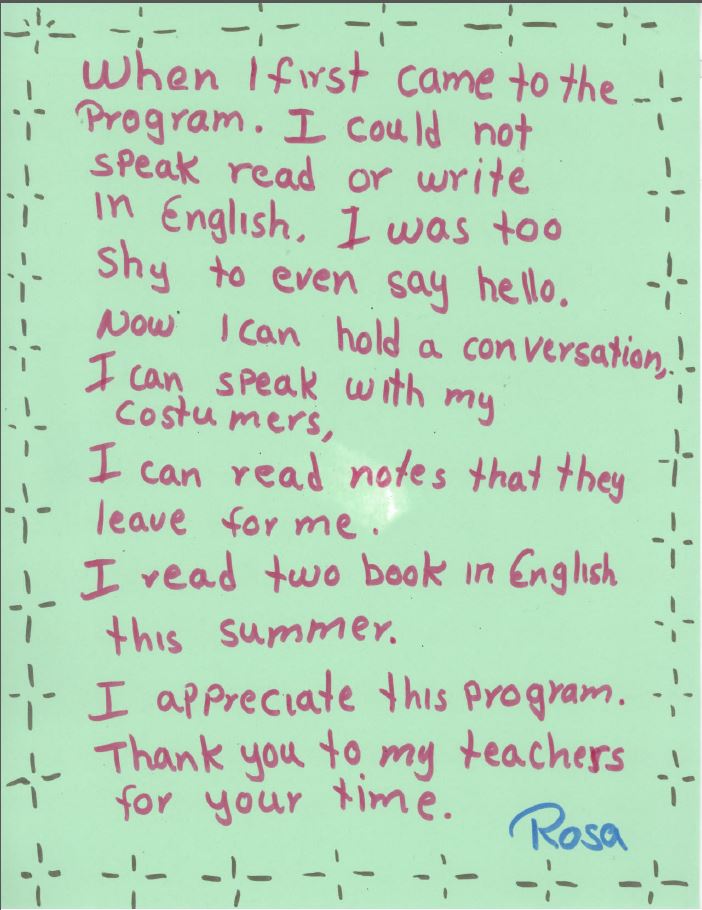 When I first came to the
Program. I could not
speak read or write
in English. I was too
shy to even say hello.
Now I can hold a conversation,
I can speak with my
costumers,
I can read notes that they
leave for me.
I read two book in English
this summer.
I appreciate this program.
Thank you to my teachers
for your time.
Rosa